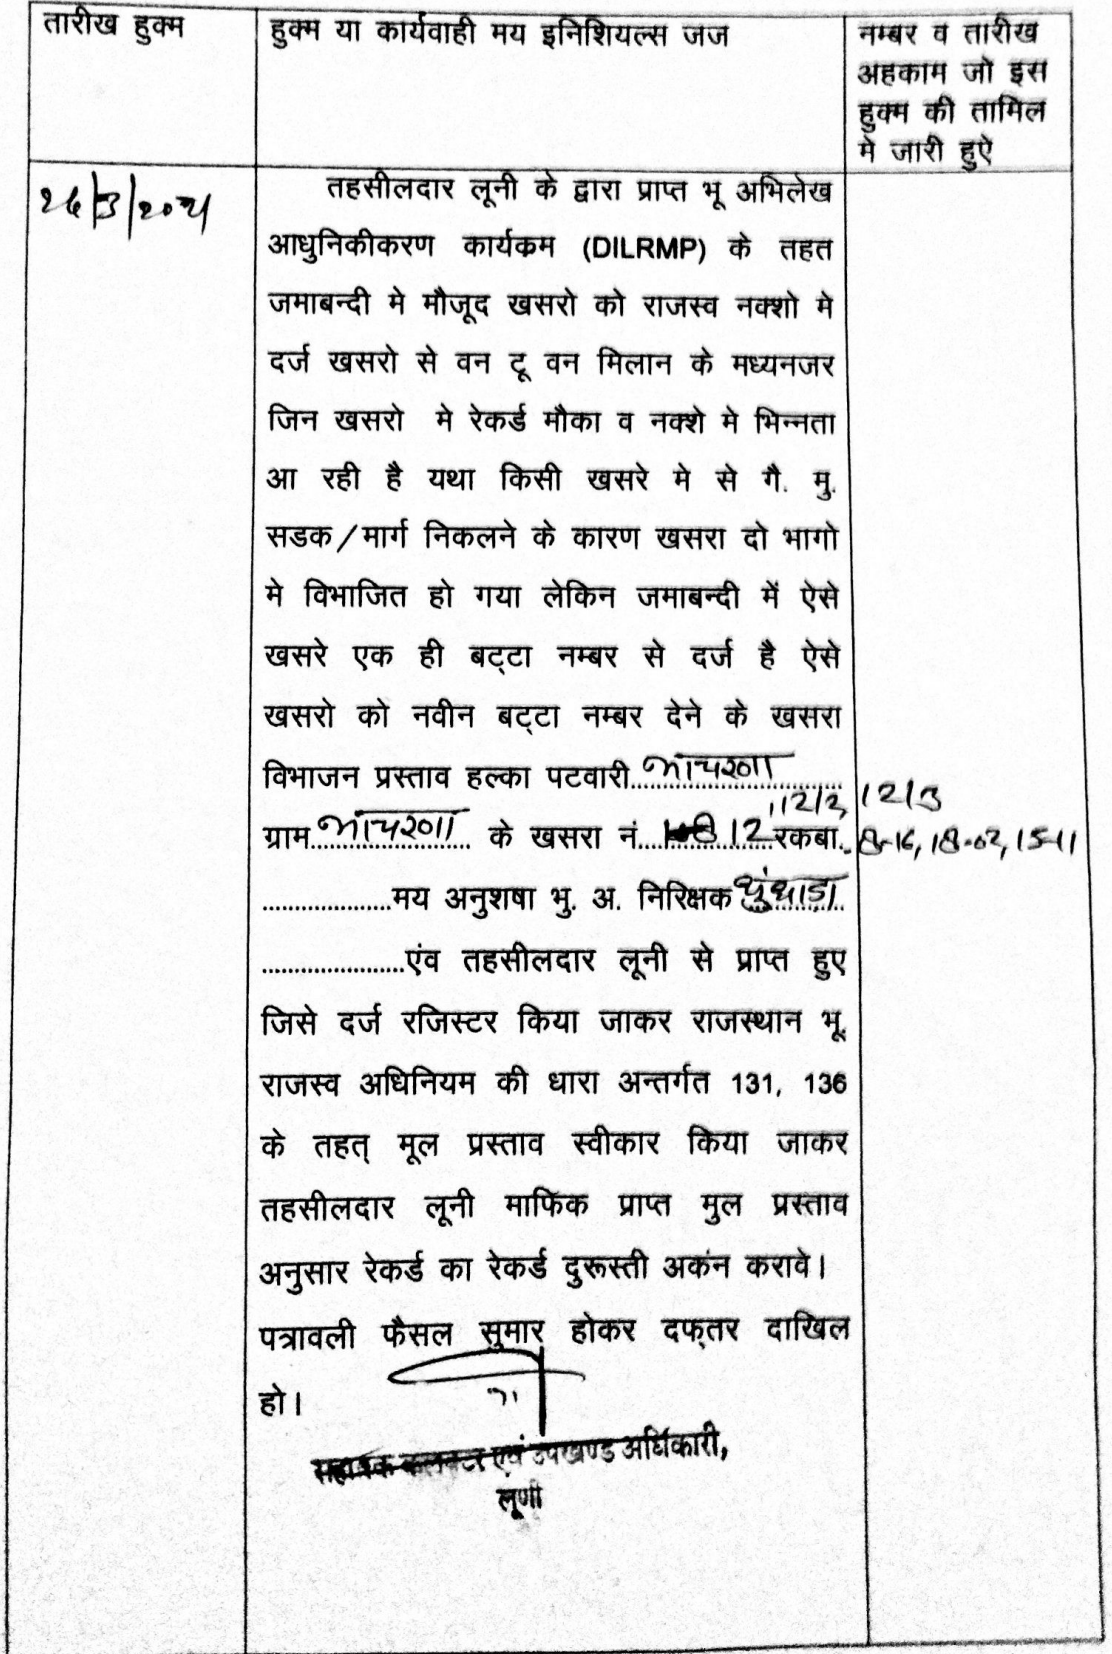 तारीख हुक्म
हुक्म या कार्यवाही मय इनिशियल्स जज
नम्बर व तारीख
अहकाम जो इस
हुक्म की तामिल
मे जारी हुऐ
तहसीलदार लूनी के द्वारा प्राप्त भू अभिलेख
आधुनिकीकरण कार्यक्रम (DILRMP) के तहत
जमाबन्दी मे मौजूद खसरो को राजस्व नक्शो मे
दर्ज खसरो से वन टू वन मिलान के मध्यनजर
जिन खसरो मे रेकर्ड मौका व नक्शे मे भिन्नता
आ रही है यथा किसी खसरे मे से गै. मु.
सडक/मार्ग निकलने के कारण खसरा दो भागो
मे विभाजित हो गया लेकिन जमाबन्दी में ऐसे
खसरे एक ही बट्टा नम्बर से दर्ज है ऐसे
खसरो को नवीन बट्टा नम्बर देने के खसरा
विभाजन प्रस्ताव हल्का पटवारी....................
112/2, 12/3
ग्राम.................... के खसरा नं.......12....रकबा.. 8-16, 18-02, 15-11
....................मय अनुशषा भु. अ. निरिक्षक धुंधाडा
......................एंव तहसीलदार लूनी से प्राप्त हुए
जिसे दर्ज रजिस्टर किया जाकर राजस्थान भू.
राजस्व अधिनियम की धारा अन्तर्गत 131, 136
के तहत् मूल प्रस्ताव स्वीकार किया जाकर
तहसीलदार लूनी माफिक प्राप्त मुल प्रस्ताव
अनुसार रेकर्ड का रेकर्ड दुरूस्ती अकंन करावे।
पत्रावली फैसल सुमार होकर दफ्तर दाखिल
हो।
सहायक कलक्टर एवं उपखण्ड अधिकारी,
लूणी